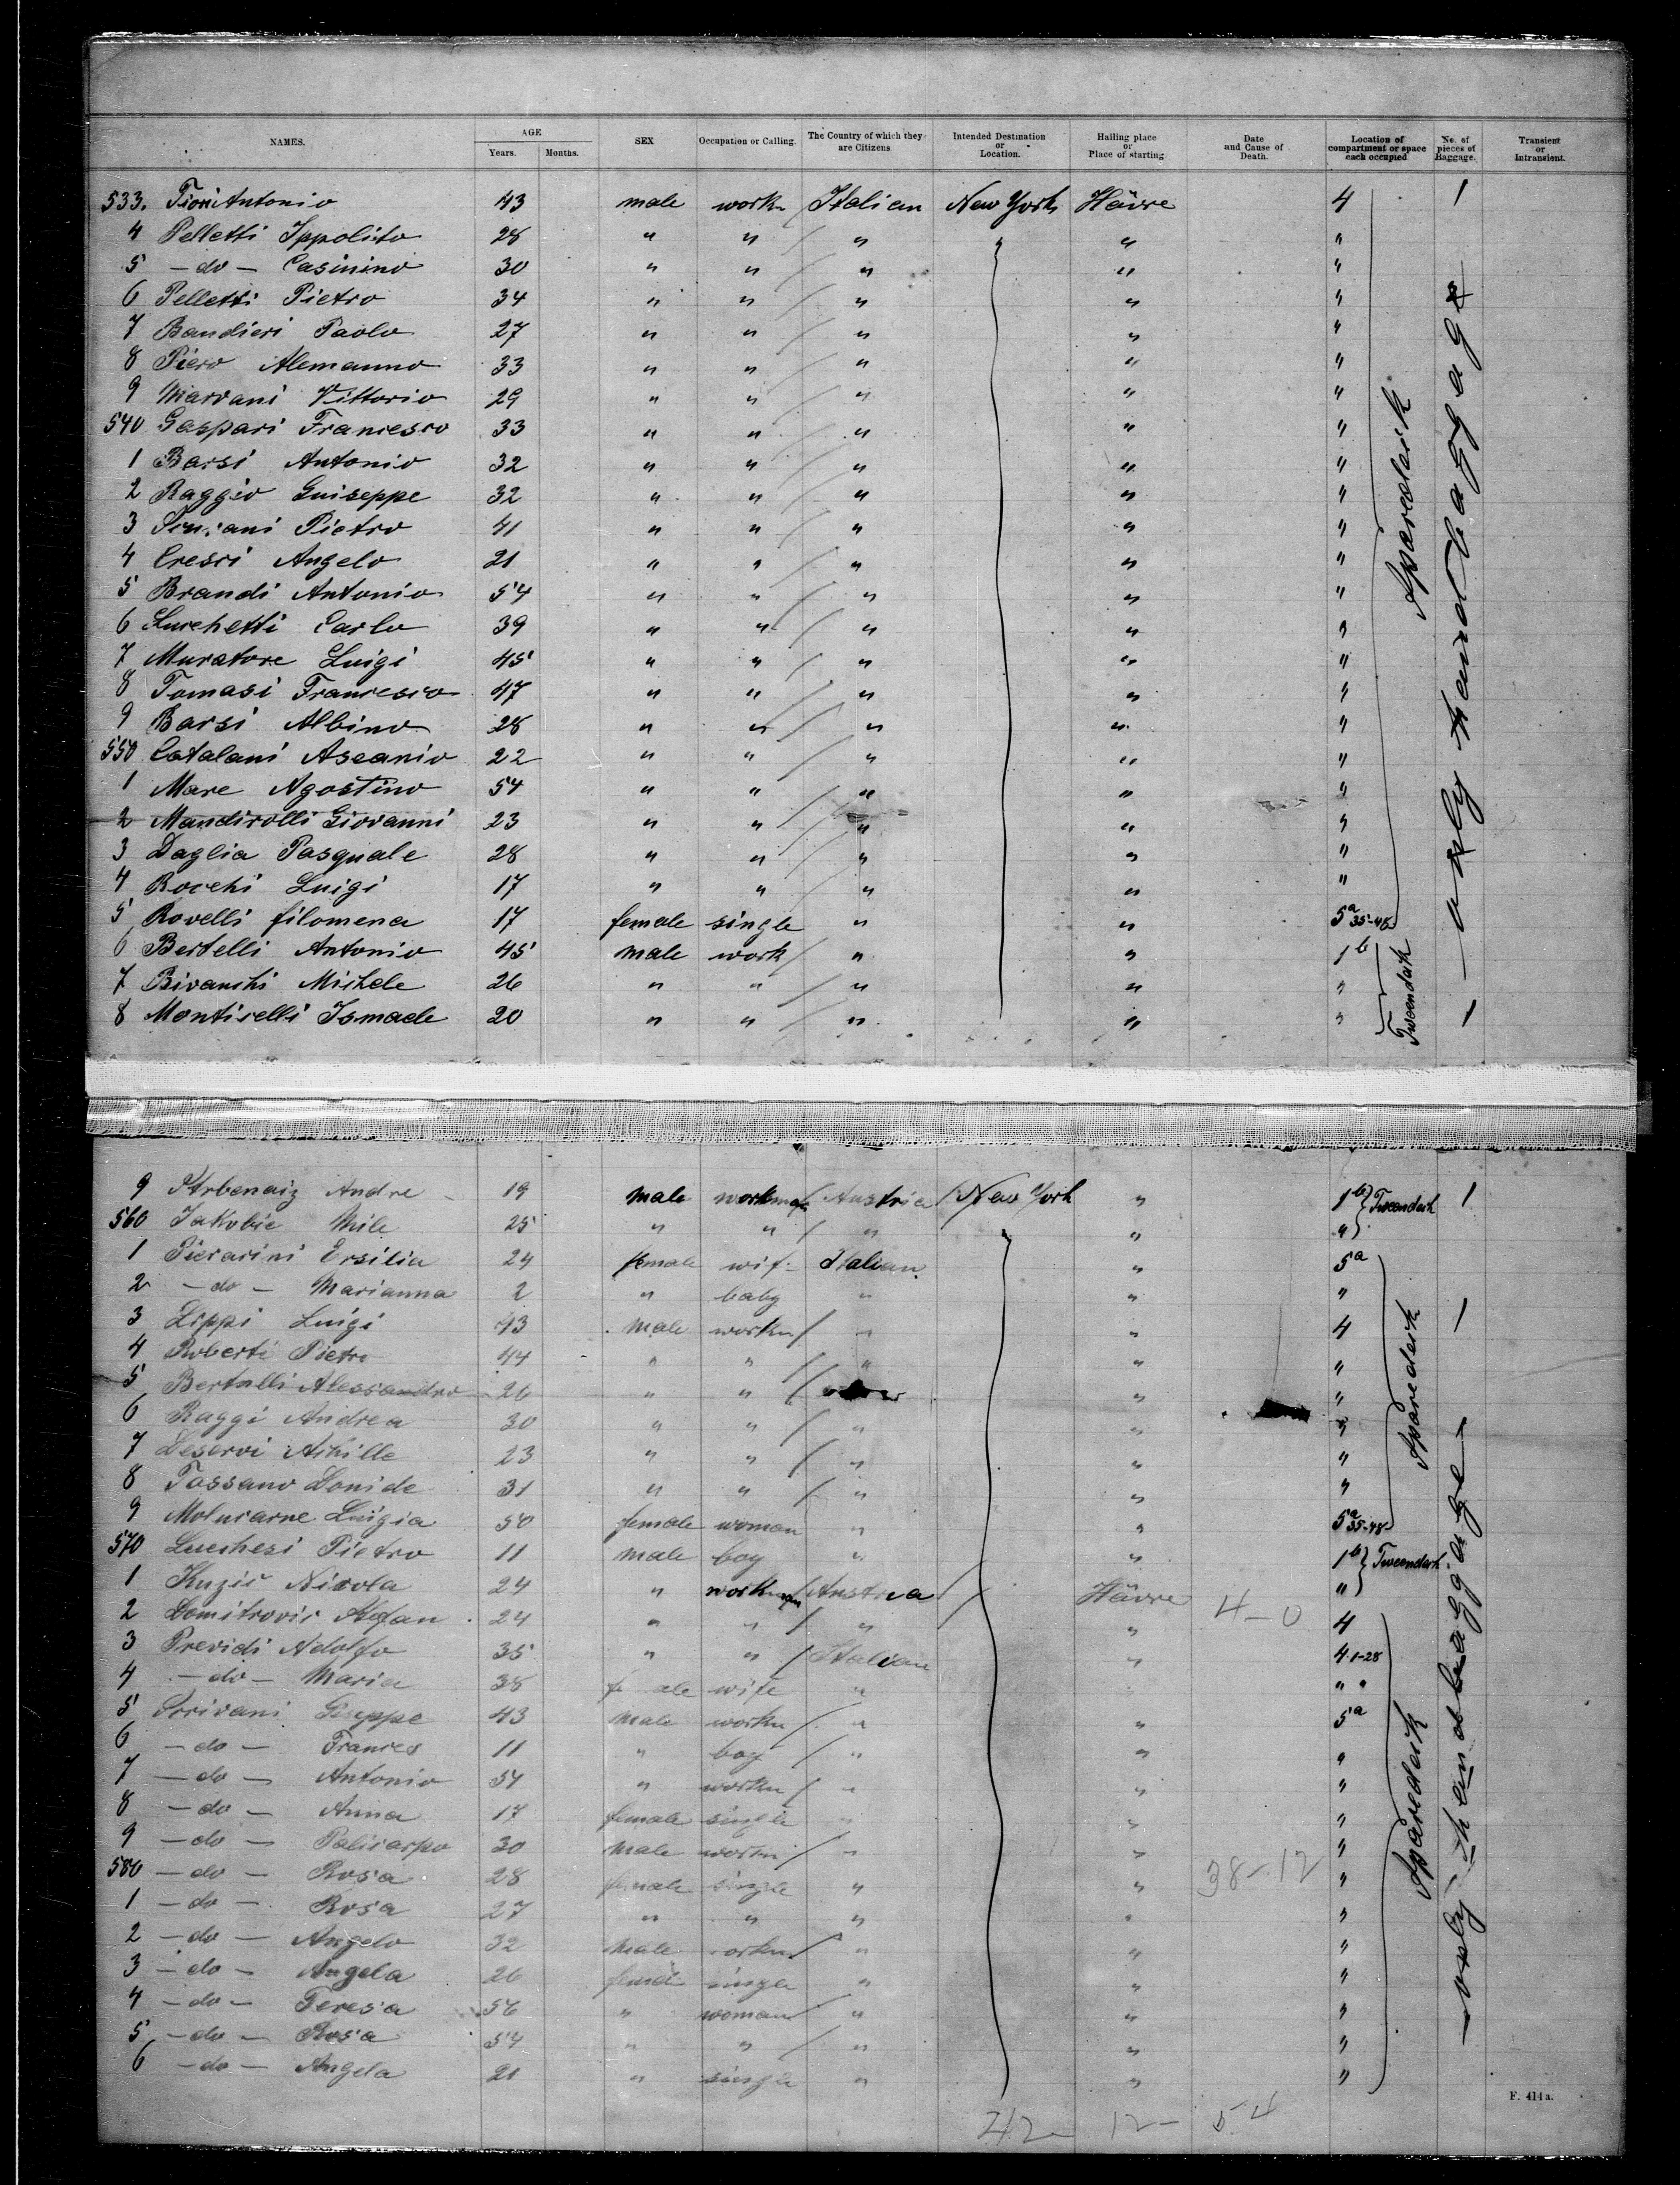 NAMES. AGE SEX Occupation or Calling. The Country of which they are Citizens Intended Destination or Location. Hailing place or Place of starting Date and Cause of Death. Location of compartment or space each occupied No. of pieces of Baggage. Transient or Intransient.
Years. Months.
533. Fiori Antonio 43 male workm Italian New York Hâvre 4
4 Pelletti Ippolito 28 " " " " "
5 - do - Casinino 30 " " " " "
6 Pelletti Pietro 34 " " " " "
7 Bandieri Paolo 27 " " " " "
8 Piero Alemanno 33 " " " " "
9 Marvani Vittorio 29 " " " " "
540 Gaspari Francesco 33 " " " " "
1 Barsi Antonio 32 " " " " "
2 Raggio Guiseppe 32 " " " " "
3 Pietro 41 " " " " "
4 Cresci Angelo 21 " " " " "
5 Brandi Antonio 54 " " " " "
6 Luchetti Carlo 39 " " " " "
7 Muratore Luigi 45 " " " " "
8 Tomasi Francesco 47 " " " " "
9 Barsi Albino 28 " " " " "
550 Catalani Ascanio 22 " " " " "
1 Mare Agostino 54 " " " " "
2 Mandirolli Giovanni 23 " " " " "
3 Daglia Pasquale 28 " " " " "
4 Rocchi Luigi 17 " " " " "
5 Rovelli filomena 17 female single " " 5a 35-48
6 Bertelli Antonio 45 male work " " 1b
7 Bivanchi Michele 26 " " " " "
8 Monticelli Ismaele 20 " " " " "
Sparedeck
Tweendeck
only handbaggage
9 Andre 19 male workman Austria New York " 1b Tweendeck
560 Jakobic Mile 25 " " " " "
1 Pierarini Ersilia 24 female wife Italian " 5a
2 - do - Marianna 2 " baby " " "
3 Lippi Luigi 43 male workm " " 4
4 Roberti Pietro 44 " " " " "
5 Bertulli Alessandro 26 " " " "
6 Raggi Andrea 30 " " " " "
7 Deservi Achille 23 " " " " "
8 Tossano Donide 31 " " " " "
9 Luigia 50 female woman " " 5a 35-48
570 Lucchesi Pietro 11 male boy " " 1b Tweendeck
1 Kuzic Nicola 24 " workman Austria Hâvre "
2 Domitrovic Stefan 24 " " " " 4-0 4
3 Previdi Adolfo 35 " " Italian " 4 1-28
4 - do - Maria 38 female wife " " "
5 Scrivani Giuseppe 43 male workm " " 5a
6 - do - Frances 11 " boy " " "
7 - do - Antonio 54 " workm " " "
8 - do - Anna 17 female single " " "
9 - do - Policarpo 30 male workm " " "
580 - do - Rosa 28 female single " " 38-12 "
1 - do - Rosa 27 " " " " "
2 - do - Angelo 32 male workm " " "
3 - do - Angela 26 female single " " "
4 - do - Teresa 56 " woman " " "
5 - do - Rosa 54 " " " " "
6 - do - Angela 21 " single " " "
Sparedeck
Sparedeck
only handbaggage
42 12 - 54
F. 414 a.